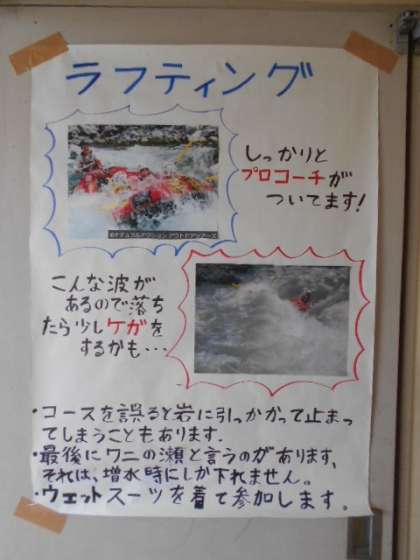 ラフティング
©ナチュラルアクション アウトドアツアーズ
しっかりと
プロコーチが
ついてます!
こんな波が
あるので落ち
たら少しケガを
するかも・・・
・コースを誤ると岩に引っかかって止まっ
てしまうこともあります.
・最後にワニの瀬と言うのがあります、
それは、増水時にしか下れません。
・ウェットスーツを着て参加します。